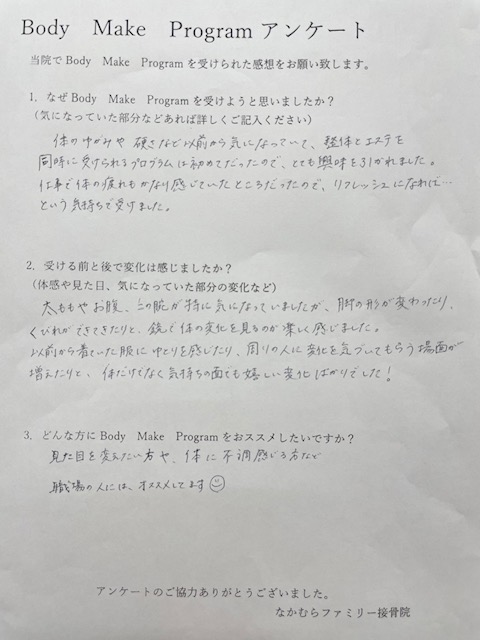 Body Make Program アンケート
当院で Body Make Program を受けられた感想をお願い致します。
1. なぜ Body Make Program を受けようと思いましたか？
（気になっていた部分などあれば詳しくご記入ください）
体のゆがみや 硬さなど以前から気になっていて、整体とエステを
同時に受けられるプログラムは初めてだったので、とても興味を引かれました。
仕事で体の疲れもかなり感じていたところだったので、リフレッシュになれば…
という気持ちで受けました。
2. 受ける前と後で変化は感じましたか？
（体感や見た目、気になっていた部分の変化など）
太ももやお腹、二の腕が特に気になっていましたが、脚の形が変わったり、
くびれができてきたりと、鏡で体の変化を見るのが楽しく感じました。
以前から着ていた服にゆとりを感じたり、周りの人に変化を気づいてもらう場面が
増えたりと、体だけでなく気持ちの面でも嬉しい変化ばかりでした！
3. どんな方に Body Make Program をおススメしたいですか？
見た目を変えたい方や、体に不調感じる方など
職場の人には、オススメしてます☺
アンケートのご協力ありがとうございました。
なかむらファミリー接骨院